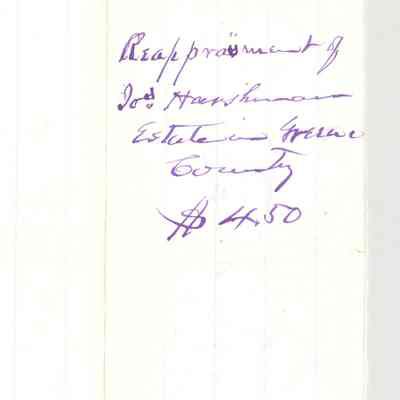 Reappraisment of
Jos Harshman
Estate in Greene
County
$ 4.50